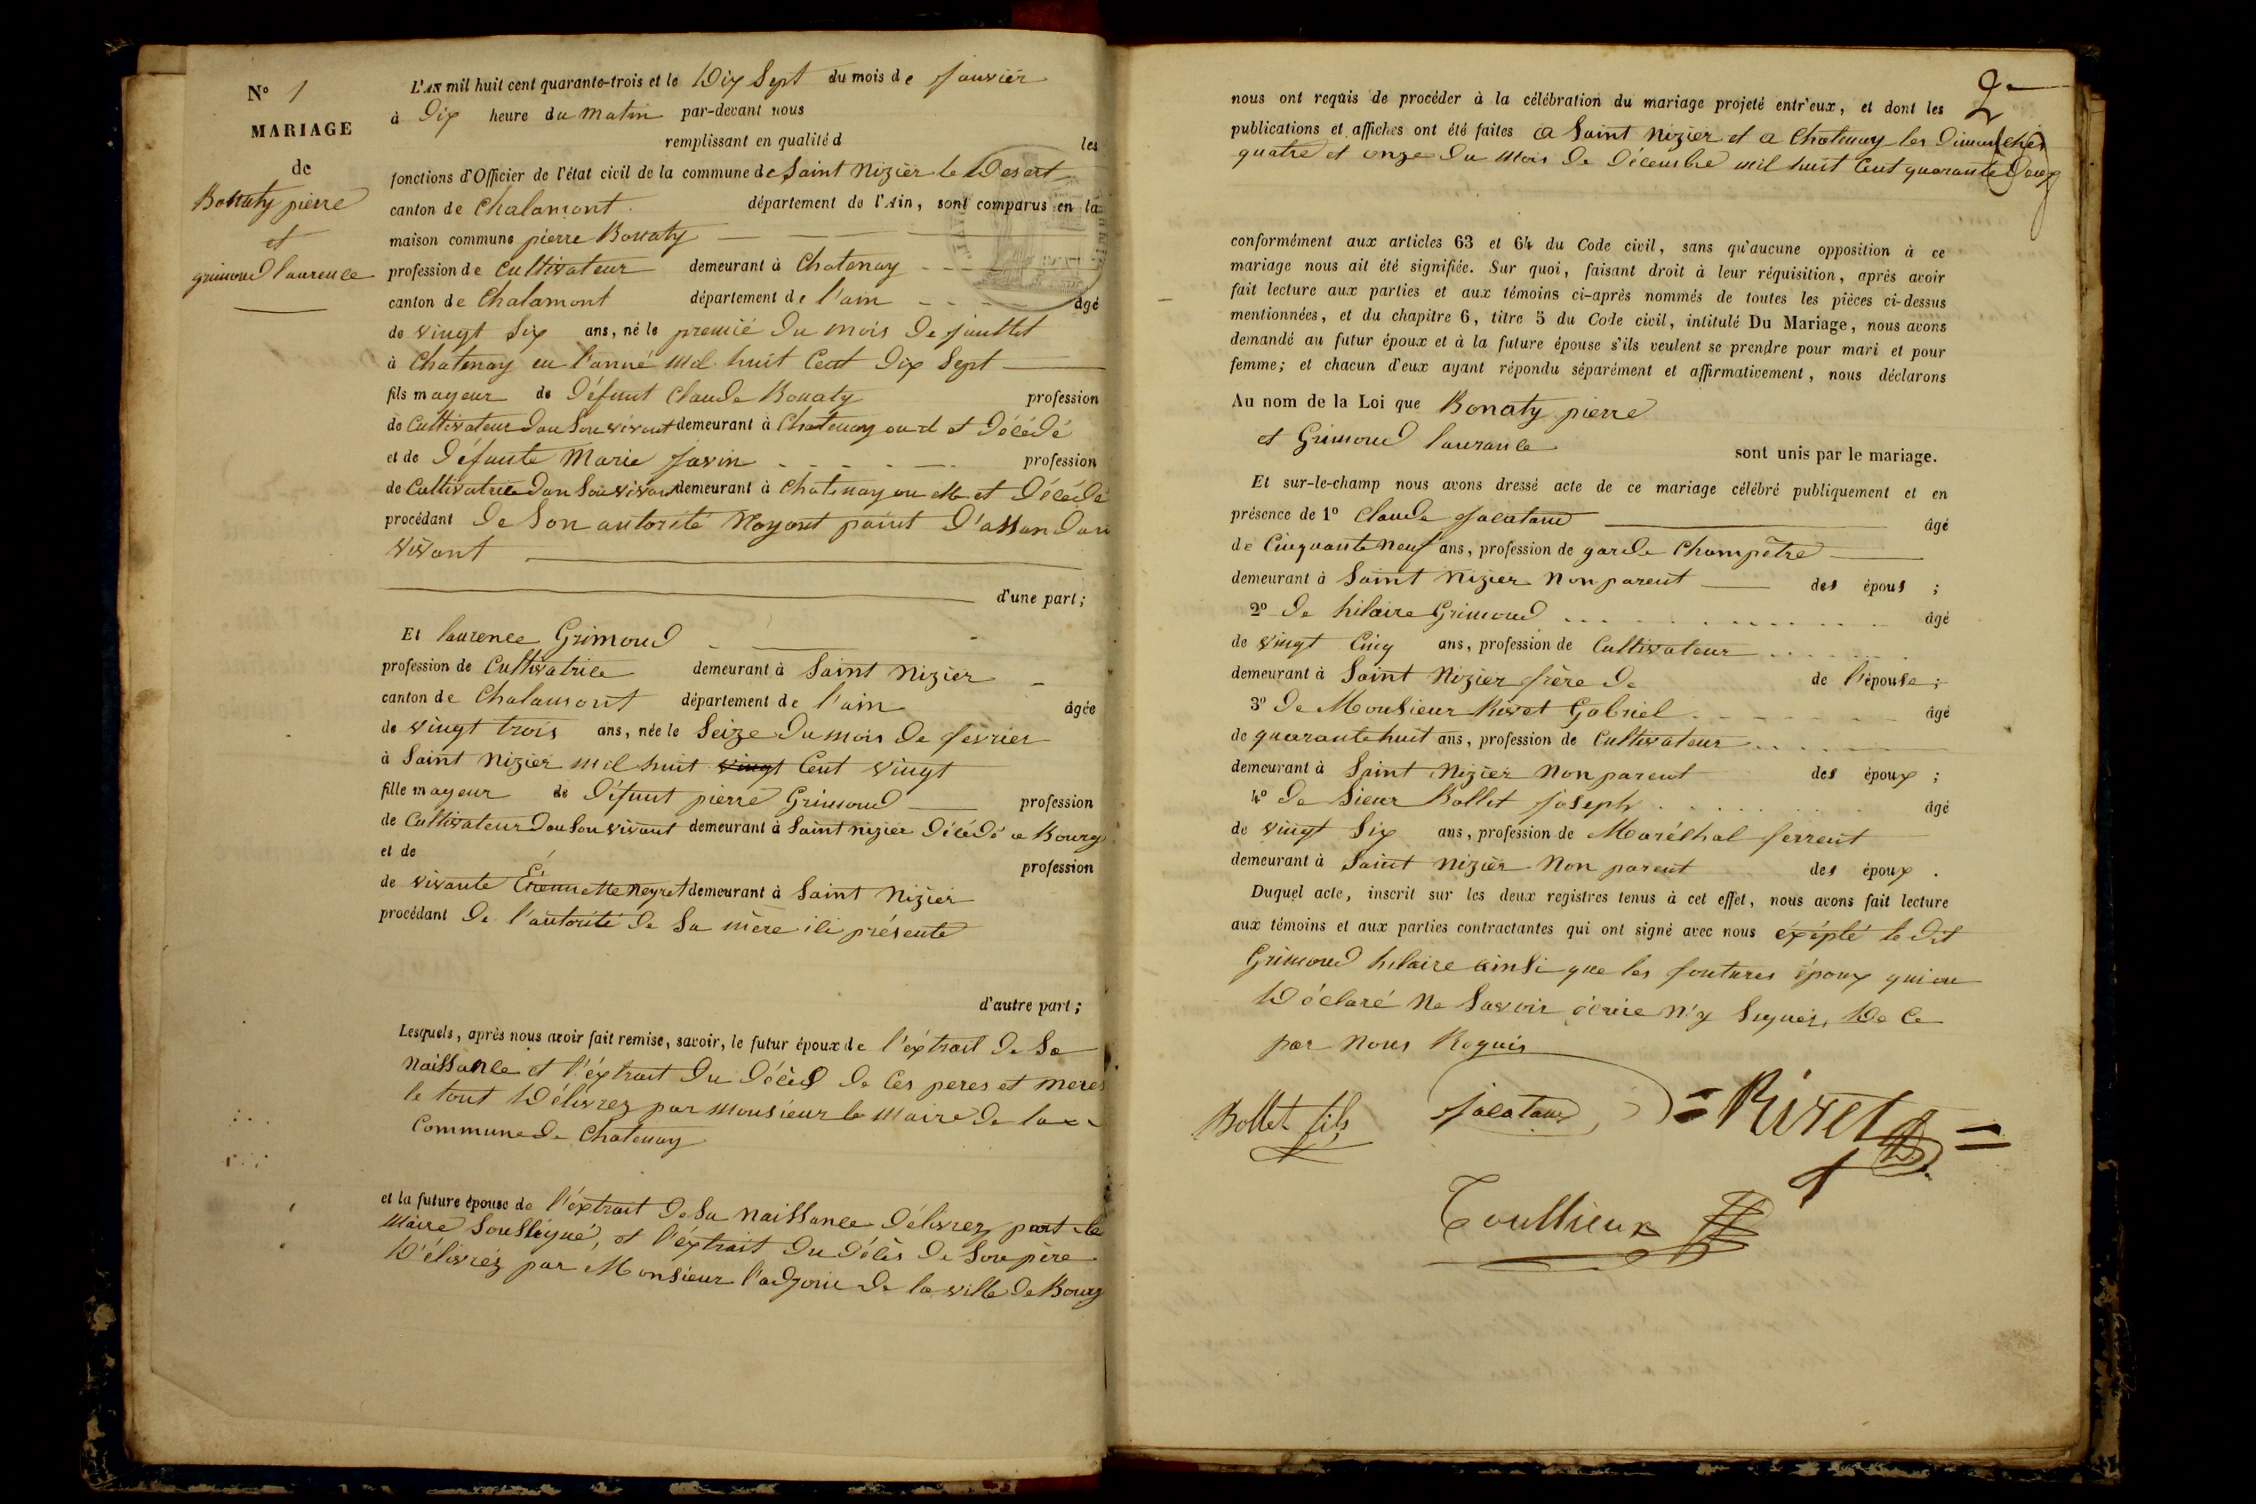 N° 1
MARIAGE
de
Bonaty pierre
et
grimoud laurence
L'AN mil huit cent quarante-trois et le Dix Sept du mois de Janvier
à Dix heure du matin par-devant nous
remplissant en qualité d les
fonctions d'Officier de l'état civil de la commune de Saint Nizier le Desert
canton de Chalamont département de l'Ain, sont comparus en la
maison commune pierre Bonaty
profession de Cultivateur demeurant à Chatenay
canton de Chalamont département de l'ain âgé
de vingt Six ans, né le premié du mois de Jeuillet
à Chatenay en l'anné mil huit Cent Dix Sept
fils mayeur de Défunt Claude Bonaty profession
de Cultivateur Dan Son vivant demeurant à Chatenay et Décédé
et de Défunte Marie Javin profession
de Cultivatrice Dan Son vivant demeurant à Chatenay ou elle et Décédé
procédant de Son autorité Nayant point D'assandan
vivant
d'une part;
Et laurence Grimoud
profession de Cultivatrice demeurant à Saint Nizier
canton de Chalamont département de l'ain âgée
de vingt trois ans, née le Seize du mois de fevrier
à Saint Nizier mil huit vingt Cent vingt
fille mayeur de Défunt pierre Grimoud profession
de Cultivateur Dan Son vivant demeurant à Saint nizier Décédé a Bourg
et de profession
de vivante Étiennette Neyret demeurant à Saint Nizier
procédant De l'autorité de Sa mère ici présente
d'autre part;
Lesquels, après nous avoir fait remise, savoir, le futur époux de l'éxtrait de Sa
Naissance et l'éxtrait Du Décès De Ces peres et meres
le tout Délivrez par monsieur le maire De la
Commune de Chatenay
et la future épouse de l'éxtrait De Sa Naissance Délivrez part le
Maire Soussigné, et l'éxtrait Du Décès De Son père
Délivréz par Monsieur l'adjoin De la ville de Bourg
2
nous ont requis de procéder à la célébration du mariage projeté entr'eux, et dont les
publications et affiches ont été faites a Saint Nizier et a Chatenay les Dimanches
quatre et onze Du Mois De Décembre mil huit Cent quarante Deux
conformément aux articles 63 et 64 du Code civil, sans qu'aucune opposition à ce
mariage nous ait été signifiée. Sur quoi, faisant droit à leur réquisition, après avoir
fait lecture aux parties et aux témoins ci-après nommés de toutes les pièces ci-dessus
mentionnées, et du chapitre 6, titre 5 du Code civil, intitulé Du Mariage, nous avons
demandé au futur époux et à la future épouse s'ils veulent se prendre pour mari et pour
femme; et chacun d'eux ayant répondu séparément et affirmativement, nous déclarons
Au nom de la Loi que Bonaty pierre
et Grimoud laurance
sont unis par le mariage.
Et sur-le-champ nous avons dressé acte de ce mariage célébré publiquement et en
présence de 1° Claude Jacatand âgé
de Cinquante neuf ans, profession de garde Champêtre
demeurant à Saint Nizier Non parent des épous ;
2° De hilaire Grimoud âgé
de vingt Cinq ans, profession de Cultivateur
demeurant à Saint Nizier frère De de l'épouse ;
3° De Monsieur Rivet Gabriel âgé
de quarante huit ans, profession de Cultivateur
demeurant à Saint Nizier Non parent des époux ;
4° De Sieur Bollet Joseph âgé
de vingt Six ans, profession de Maréchal ferrent
demeurant à Saint Nizier Non parent des époux .
Duquel acte, inscrit sur les deux registres tenus à cet effet, nous avons fait lecture
aux témoins et aux parties contractantes qui ont signé avec nous éxépté le Dit
Grimoud hilaire ainsi que les foutures époux qui on
Déclaré Ne Savoir écrire N'y Signér, De Ce
par Nous Requis
Bollet fils Jacatand = Rivet =
Toullieux